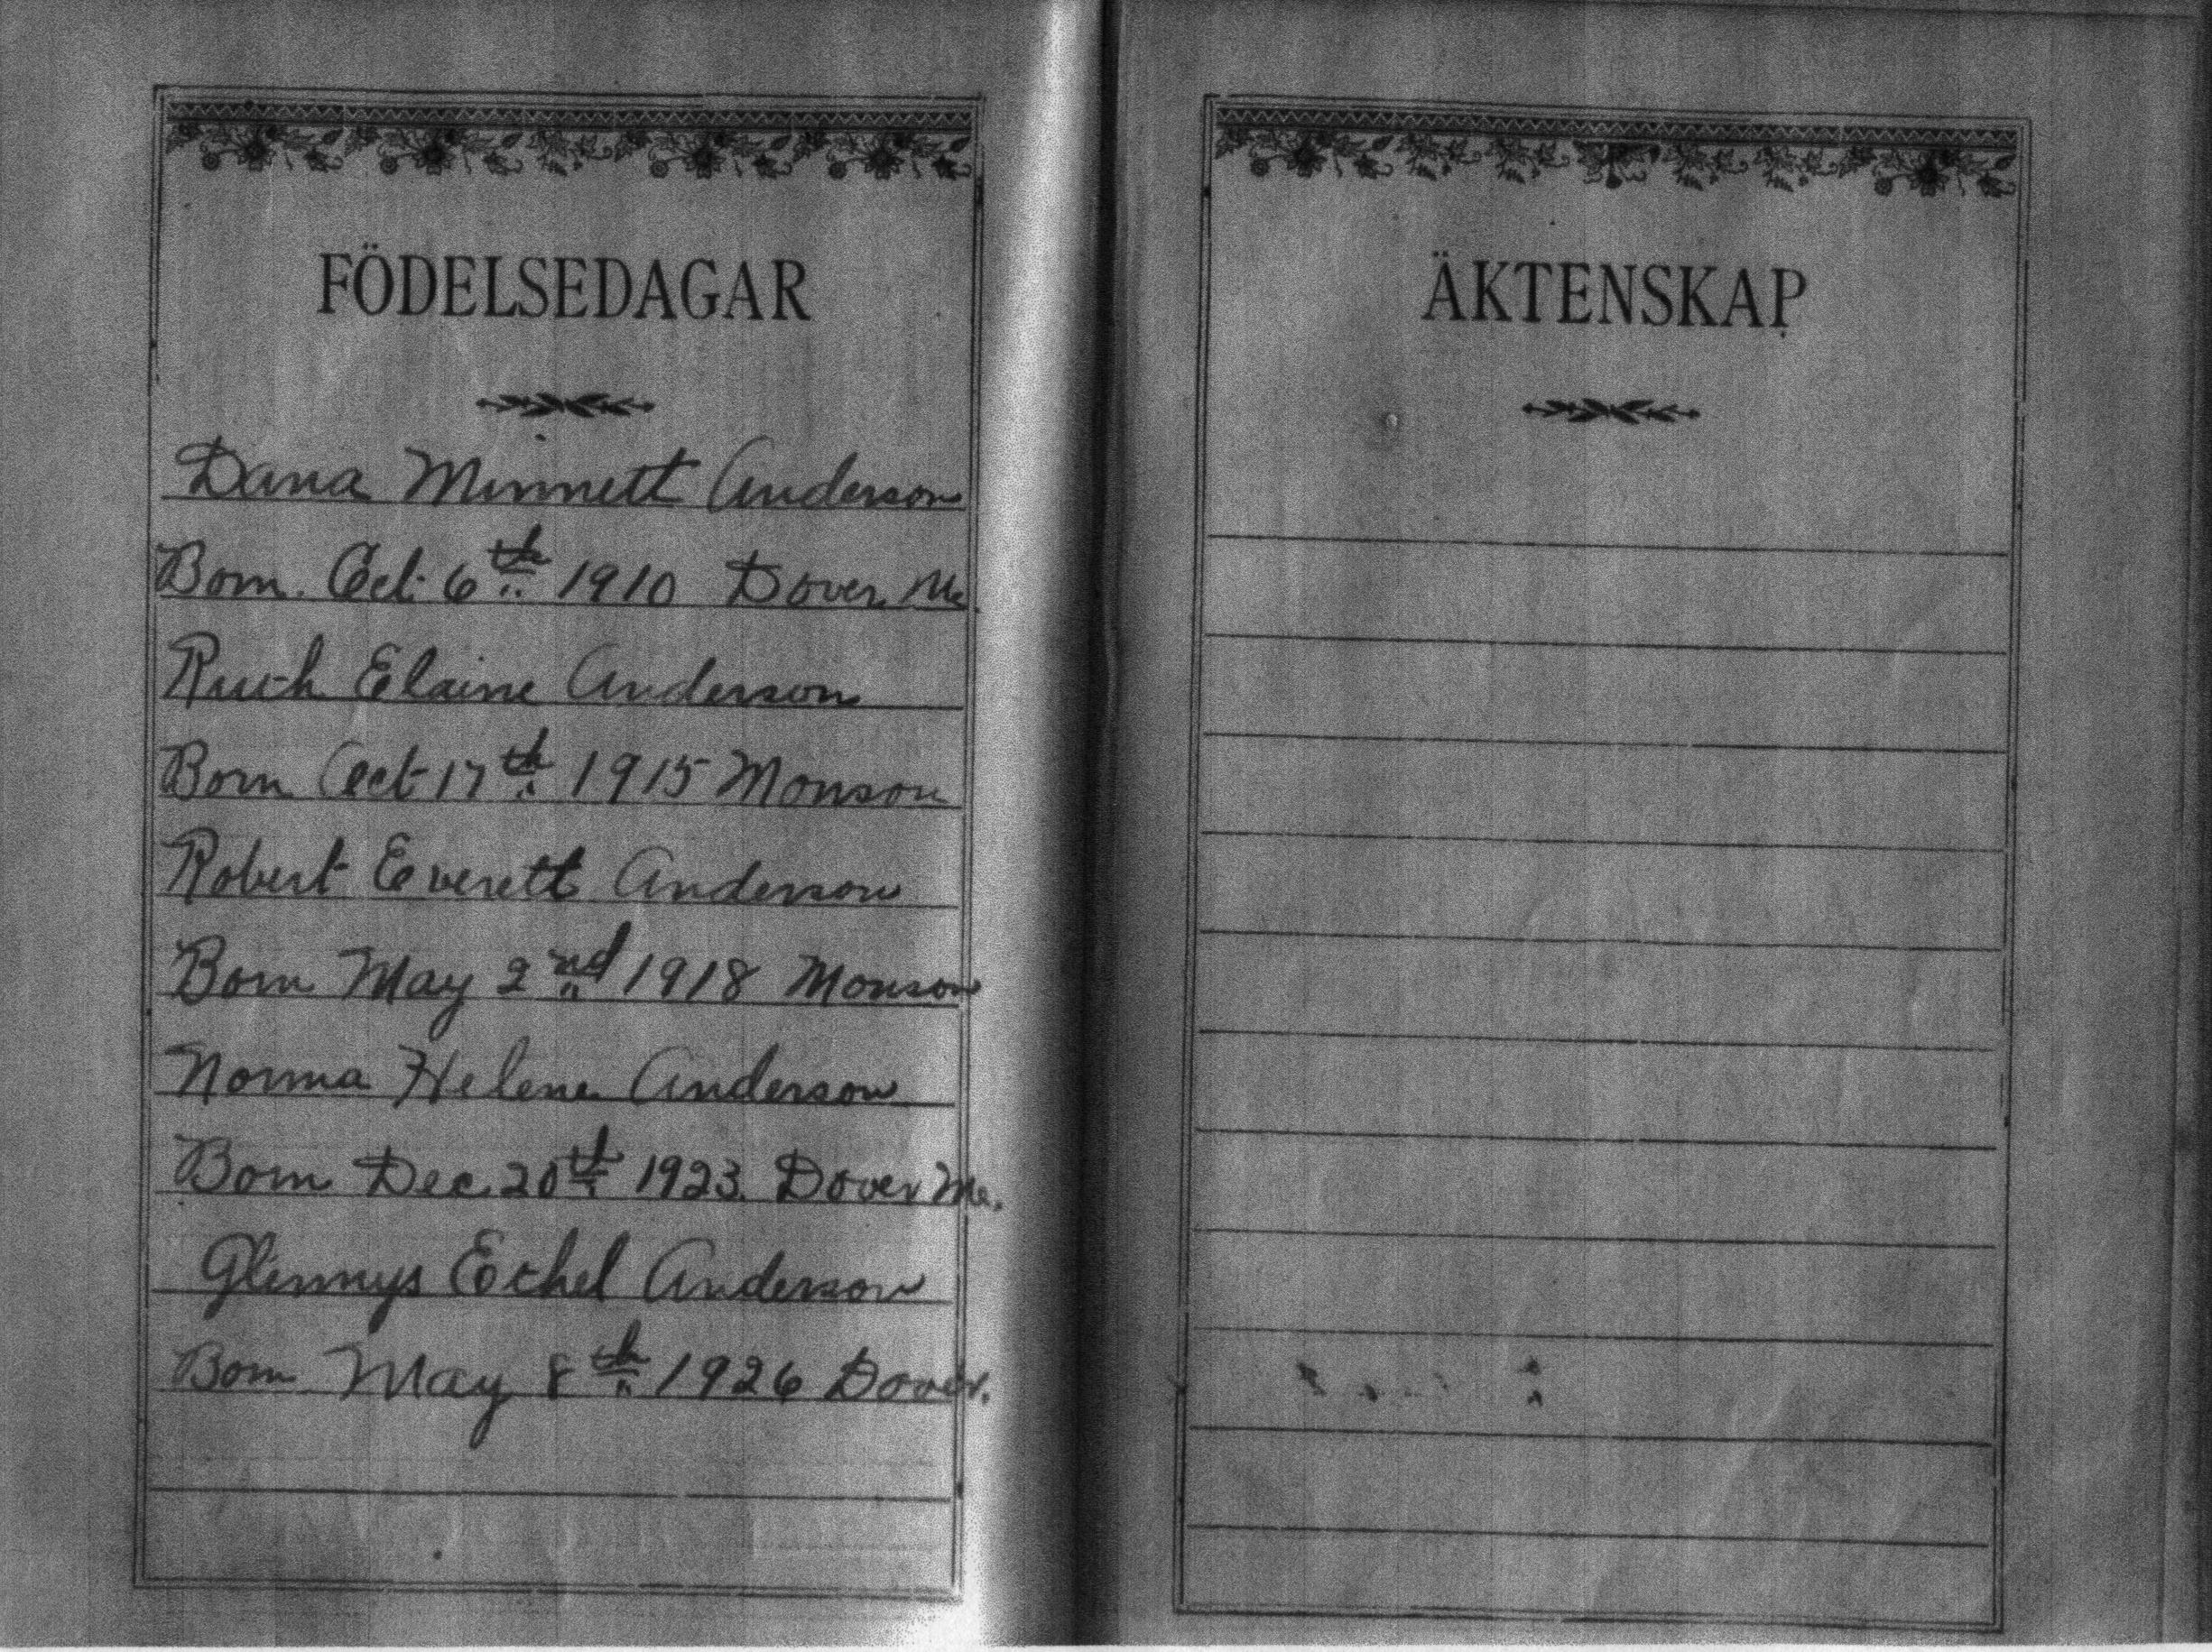 FÖDELSEDAGAR
Dana Minnett Anderson
Born Oct. 6th 1910 Dover Me.
Ruth Elaine Anderson
Born Oct 17th 1915 Monson
Robert Everett Anderson
Born May 2nd 1918 Monson
Norma Helene Anderson
Born Dec. 20th 1923. Dover Me.
Glennys Ethel Anderson
Born May 8th 1926 Dover.
ÄKTENSKAP